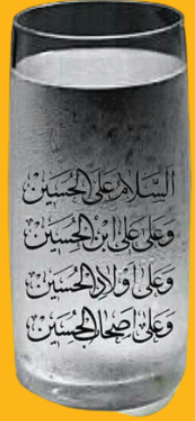 السَّلَامُ عَلَى الْحُسَيْنِ
وَعَلَى عَلِيِّ ابْنِ الْحُسَيْنِ
وَعَلَى أَوْلَادِ الْحُسَيْنِ
وَعَلَى أَصْحَابِ الْحُسَيْنِ